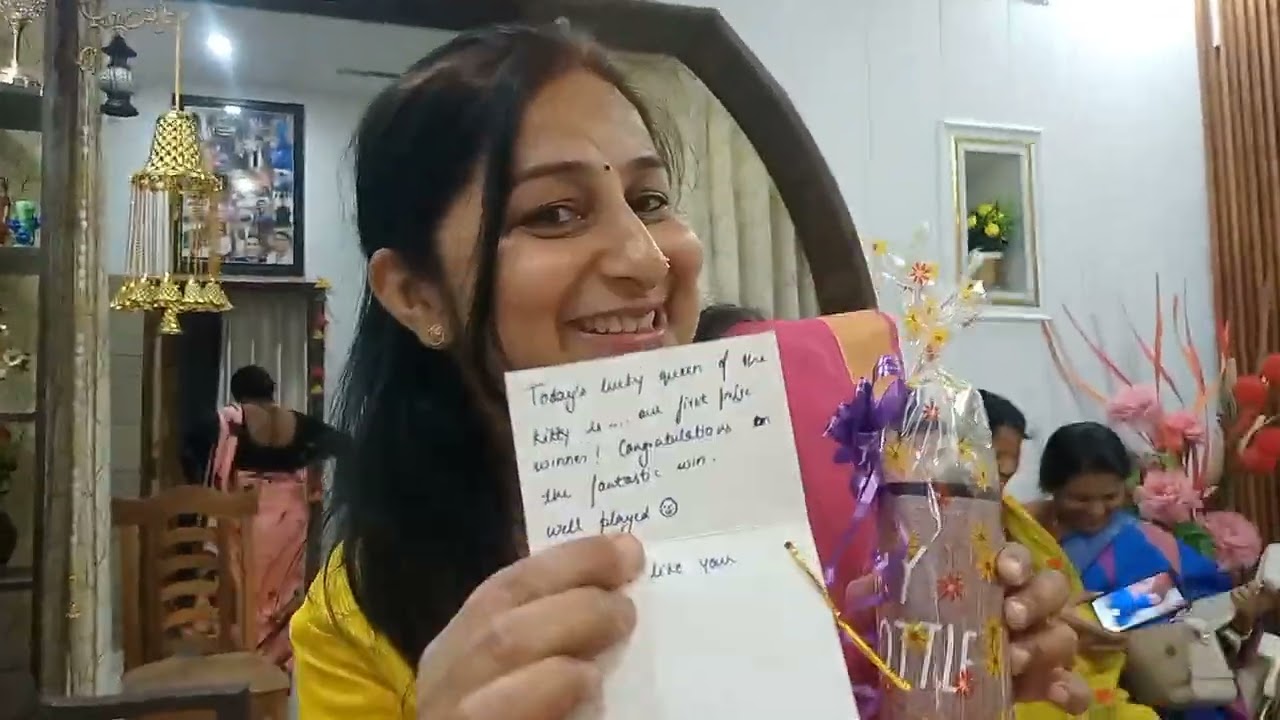 Today's lucky queen of the
kitty is .... our first prize
winner! Congratulations on
the fantastic win.
well played ☺
like your
OTTLE